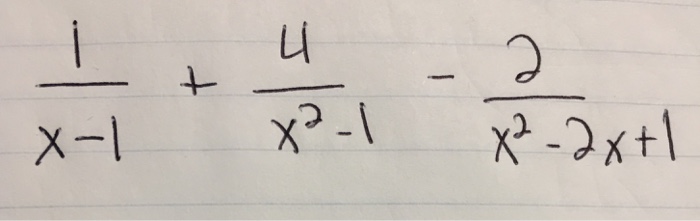 1/(x-1) + 4/(x²-1) - 2/(x²-2x+1)